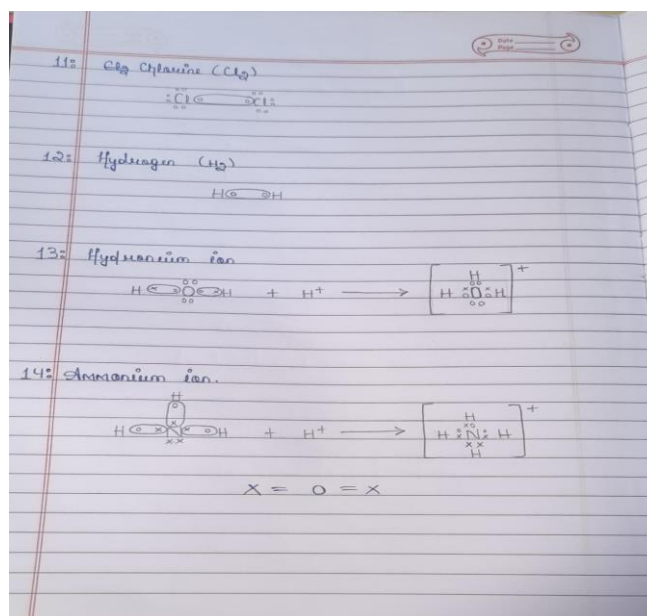 Date
Page
11: Cl2 Chlorine (Cl2)
Cl Cl
12: Hydrogen (H2)
H H
13: Hydronium ion
H O H + H+ → [H H O H]+
14: Ammonium ion.
H
H N H + H+ → [H H N H H]+
X = O = X